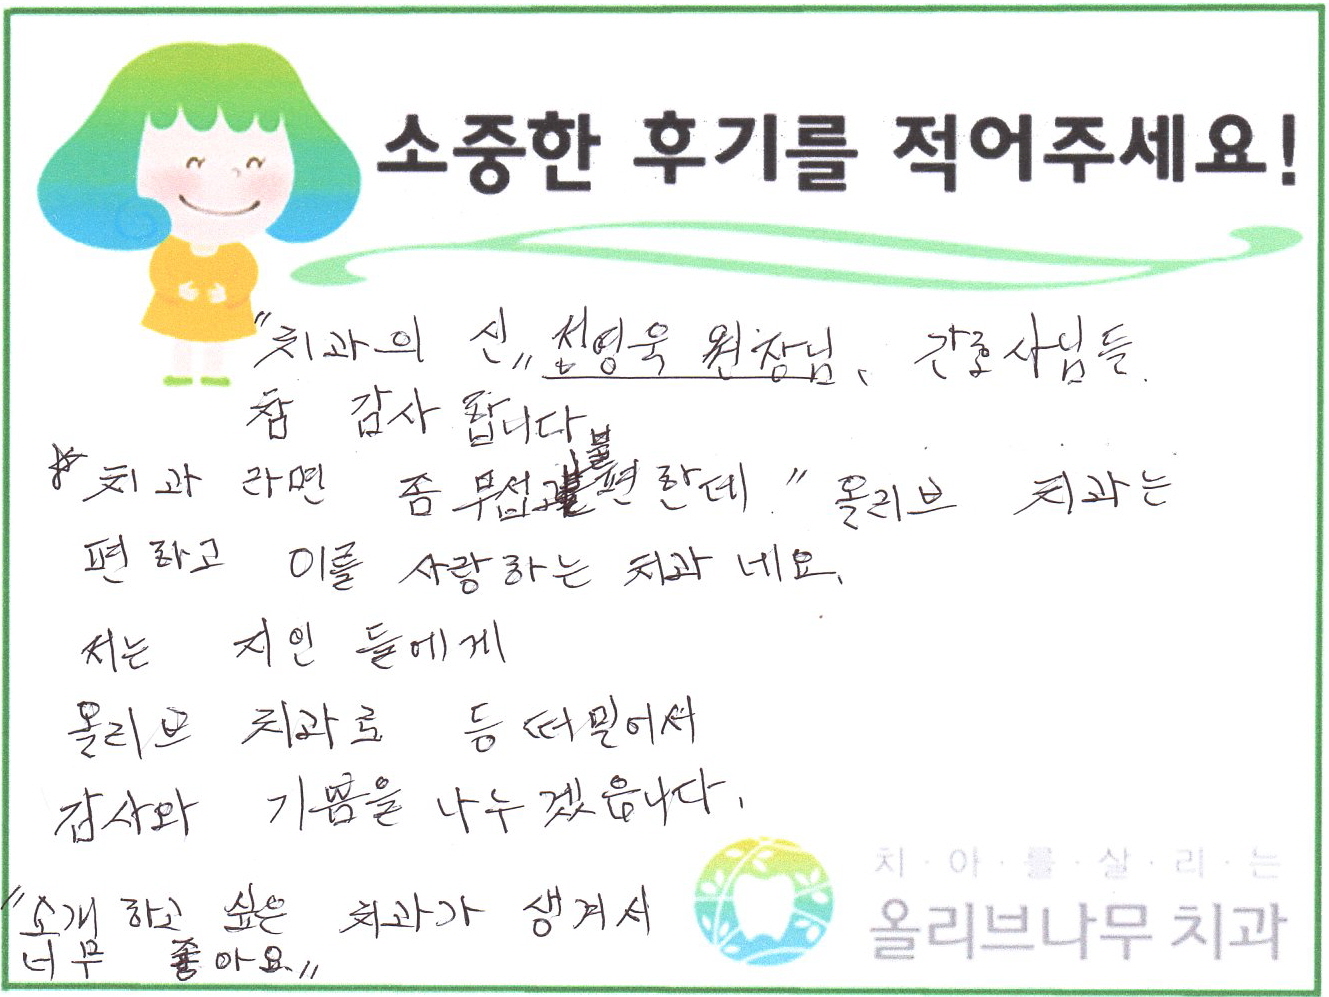 소중한 후기를 적어주세요!
"치과의 신" 전영욱 원장님, 간호사님들.
참 감사 합니다
* 치과 라면 좀 무섭고 불편한데 " 올리브 치과는
편하고 이를 사랑하는 치과 네요.
저는 지인 들에게
올리브 치과로 등 떠밀어서
감사와 기쁨을 나누겠읍니다.
"소개 하고 싶은 치과가 생겨서
너무 좋아요."
치·아·를·살·리·는
올리브나무 치과